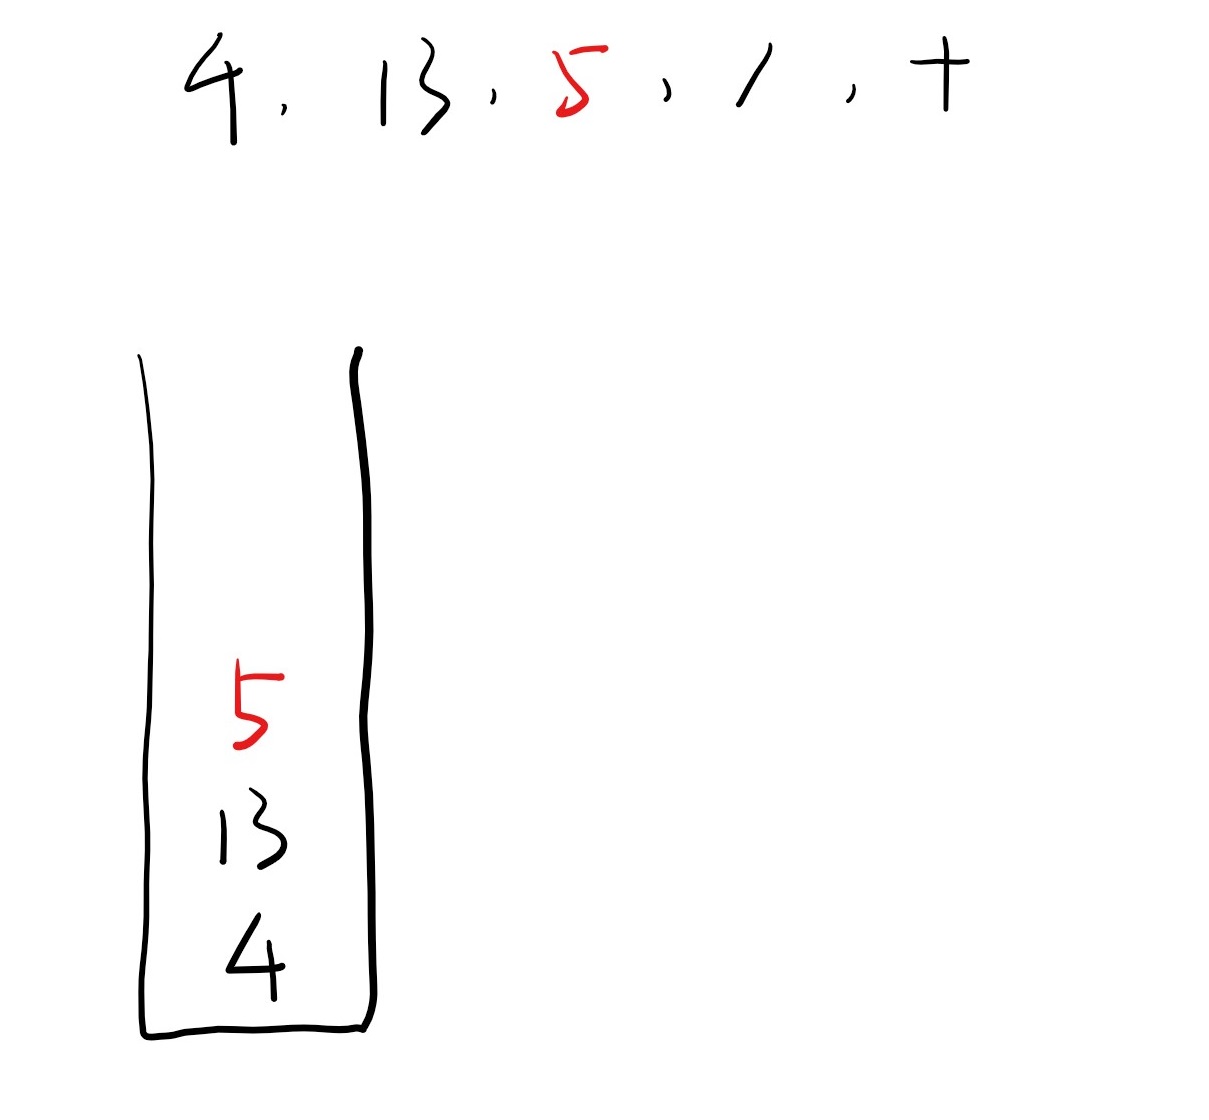 4, 13, 5, /, +
5
13
4